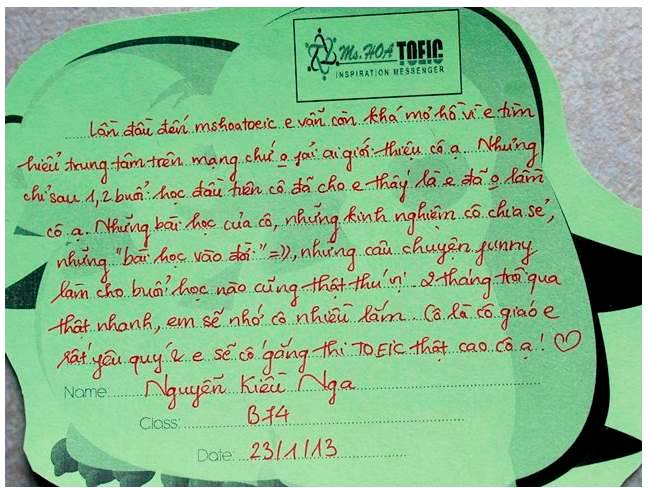 Ms.HOA TOEIC
INSPIRATION MESSENGER
Lần đầu đến mshoatoeic e vẫn còn khá mơ hồ vì e tìm
hiểu trung tâm trên mạng chứ o fải ai giới thiệu cô ạ. Nhưng
chỉ sau 1,2 buổi học đầu tiên cô đã cho e thấy là e đã o lầm
cô ạ. Những bài học của cô, những kinh nghiệm cô chia sẻ,
những "bài học vào đời" =)), những câu chuyện funny
làm cho buổi học nào cũng thật thú vị. 2 tháng trôi qua
thật nhanh, em sẽ nhớ cô nhiều lắm. Cô là cô giáo e
rất yêu quý & e sẽ cố gắng thi TOEIC thật cao cô ạ! ♡
Name: Nguyễn Kiều Nga
Class: B74
Date: 23/1/13